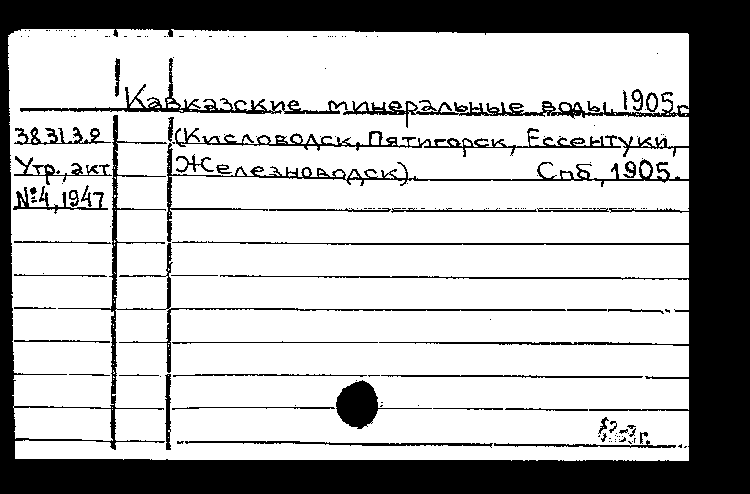 Кавказские минеральные воды. 1905г
38.31.3.2 (Кисловодск, Пятигорск, Ессентуки,
Утр., акт Железноводск). Спб., 1905.
№4, 1947